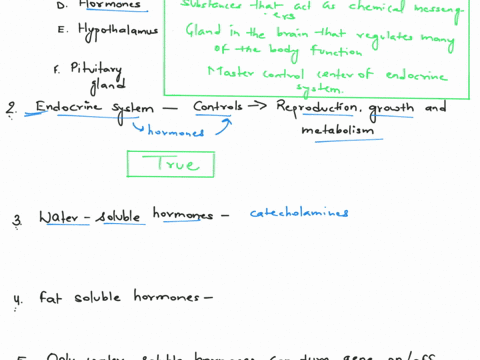 D. Hormones
Substances that act as chemical messeng-
ers
E. Hypothalamus
Gland in the brain that regulates many
of the body function
F. Pituitary
gland
Master control center of endocrine
system.
2. Endocrine system — Controls → Reproduction, growth and
metabolism
hormones
True
3. Water-soluble hormones - catecholamines
4. Fat soluble hormones -
5. Only water soluble hormones can turn gene on/off